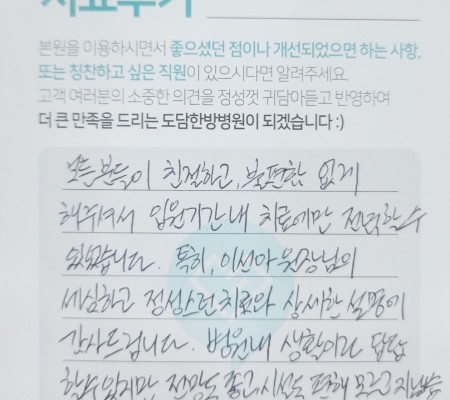 치료후기
본원을 이용하시면서 좋으셨던 점이나 개선되었으면 하는 사항,
또는 칭찬하고 싶은 직원이 있으시다면 알려주세요.
고객 여러분의 소중한 의견을 정성껏 귀담아듣고 반영하여
더 큰 만족을 드리는 도담한방병원이 되겠습니다 :)
모든 분들이 친절하고, 불편함 없게
해주셔서 입원기간 내 치료에만 전념할 수
있었습니다. 특히, 이선아 원장님의
세심하고 정성스런 치료와 상세한 설명에
감사드립니다. 병원내 생활이라 답답
할 수 있지만 전망도 좋고, 시설도 편해 모르고 지냈습